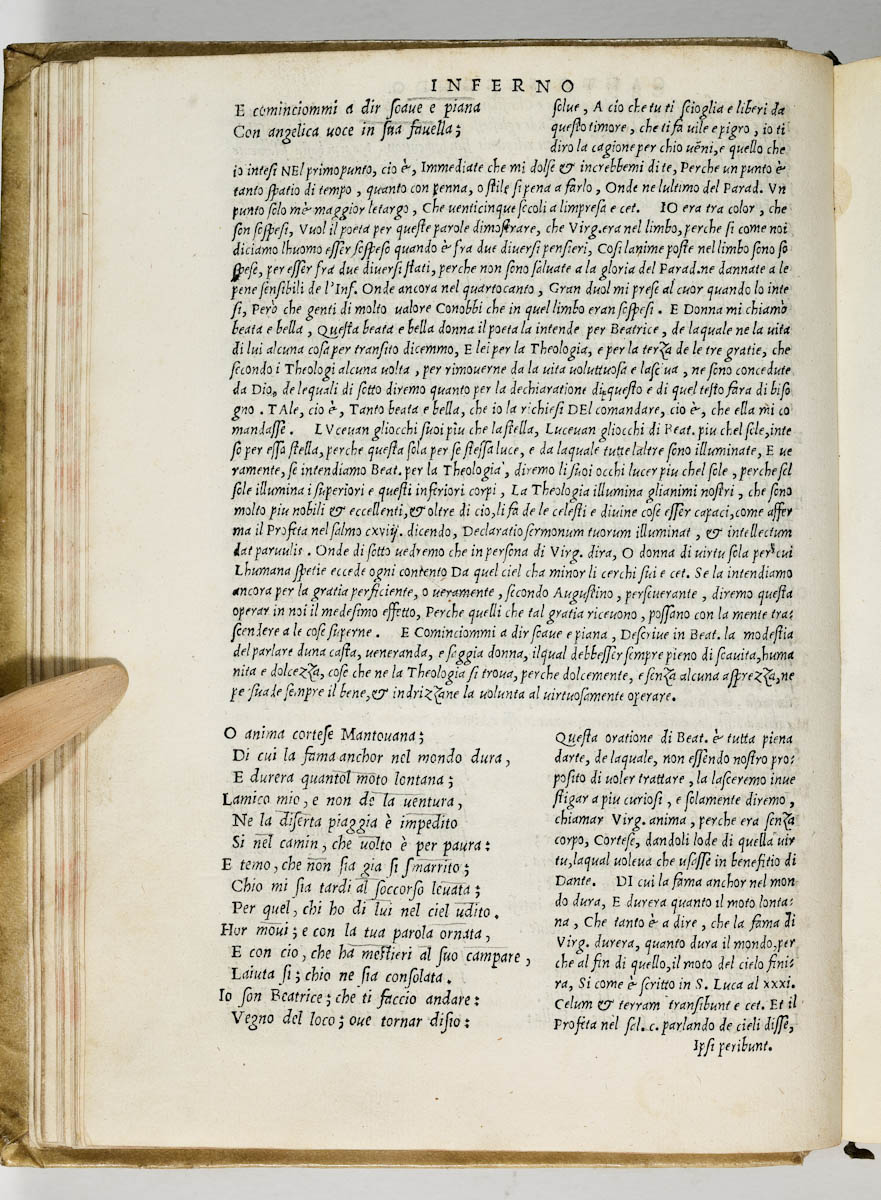 INFERNO
E cominciommi a dir soaue e piana
Con angelica uoce in sua fauella;
solue, A cio che tu ti scioglia e liberi da
questo timore, che ti fa uile e pigro, io ti
diro la cagione per chio uẽni, e quello che
io intesi NEl primo punto, cio è, Immediate che mi dolse & increbbemi di te, Perche un punto è
tanto spatio di tempo, quanto con penna, o stile si pena a farlo, Onde ne lultimo del Parad. Vn
punto solo m'è maggior letargo, Che uenticinque secoli a limpresa e cet. IO era tra color, che
son sospesi, Vuol il poeta per queste parole dimostrare, che Virg. era nel limbo, perche si come noi
diciamo lhuomo esser sospeso quando è fra due diuersi pensieri, Cosi lanime poste nel limbo sono so
spese, per esser fra due diuersi stati, perche non sono saluate a la gloria del Parad. ne dannate a le
pene sensibili de l'Inf. Onde ancora nel quarto canto, Gran duol mi prese al cuor quando lo inte
si, Però che genti di molto ualore Conobbi che in quel limbo eran sospesi. E Donna mi chiamò
beata e bella, Questa beata e bella donna il poeta la intende per Beatrice, de laquale ne la uita
di lui alcuna cosa per transito dicemmo, E lei per la Theologia, e per la terza de le tre gratie, che
secondo i Theologi alcuna uolta, per rimouerne da la uita uoluttuosa e lasciua, ne sono concedute
da Dio, de lequali di sotto diremo quanto per la dechiaratione di questo e di quel testo fara di biso
gno. TAle, cio è, Tanto beata e bella, che io la richiesi DEl comandare, cio è, che ella mi co
mandasse. LVceuan gliocchi suoi piu che la stella, Luceuan gliocchi di Beat. piu chel sole, inte
so per essa stella, perche questa sola per se stessa luce, e da laquale tutte laltre sono illuminate, E ue
ramente, se intendiamo Beat. per la Theologia, diremo li suoi occhi lucer piu chel sole, perche sel
sole illumina i superiori e questi inferiori corpi, La Theologia illumina glianimi nostri, che sono
molto piu nobili & eccellenti, & oltre di cio, li fa de le celesti e diuine cose esser capaci, come affer
ma il Profeta nel salmo cxviij. dicendo, Declaratio sermonum tuorum illuminat, & intellectum
dat paruulis. Onde di sotto uedremo che in persona di Virg. dira, O donna di uirtu sola per cui
Lhumana spetie eccede ogni contento Da quel ciel cha minor li cerchi sui e cet. Se la intendiamo
ancora per la gratia perficiente, o ueramente, secondo Augustino, perseuerante, diremo questa
operar in noi il medesimo effetto, Perche quelli che tal gratia riceuono, possano con la mente tra-
scendere a le cose superne. E Cominciommi a dir soaue e piana, Descriue in Beat. la modestia
del parlare duna casta, ueneranda, e saggia donna, ilqual debbesser sempre pieno di soauita, huma
nita e dolcezza, cose che ne la Theologia si troua, perche dolcemente, e senza alcuna asprezza, ne
persuade sempre il bene, & indrizzane la uolunta al uirtuosamente operare.
O anima cortese Mantouana;
Di cui la fama anchor nel mondo dura,
E durera quantol moto lontana;
Lamico mio, e non de la uentura,
Ne la diserta piaggia è impedito
Si nel camin, che uolto è per paura:
E temo, che non sia gia si smarrito;
Chio mi sia tardi al soccorso leuata;
Per quel, chi ho di lui nel ciel udito.
Hor moui; e con la tua parola ornata,
E con cio, che ha mestieri al suo campare,
Laiuta si; chio ne sia consolata.
Io son Beatrice; che ti faccio andare:
Vegno del loco; oue tornar disio:
Questa oratione di Beat. è tutta piena
darte, de laquale, non essendo nostro pro-
posito di uoler trattare, la lasceremo inue
stigar a piu curiosi, e solamente diremo,
chiamar Virg. anima, perche era senza
corpo, Cortese, dandoli lode di quella uir
tu, laqual uoleua che usasse in benefitio di
Dante. DI cui la fama anchor nel mon
do dura, E durera quanto il moto lonta-
na, Che tanto è a dire, che la fama di
Virg. durera, quanto dura il mondo, per
che al fin di quello, il moto del cielo fini-
ra, Si come è scritto in S. Luca al xxxi.
Celum & terram transibunt e cet. Et il
Profeta nel sal. c. parlando de cieli disse,
Ipsi peribunt.